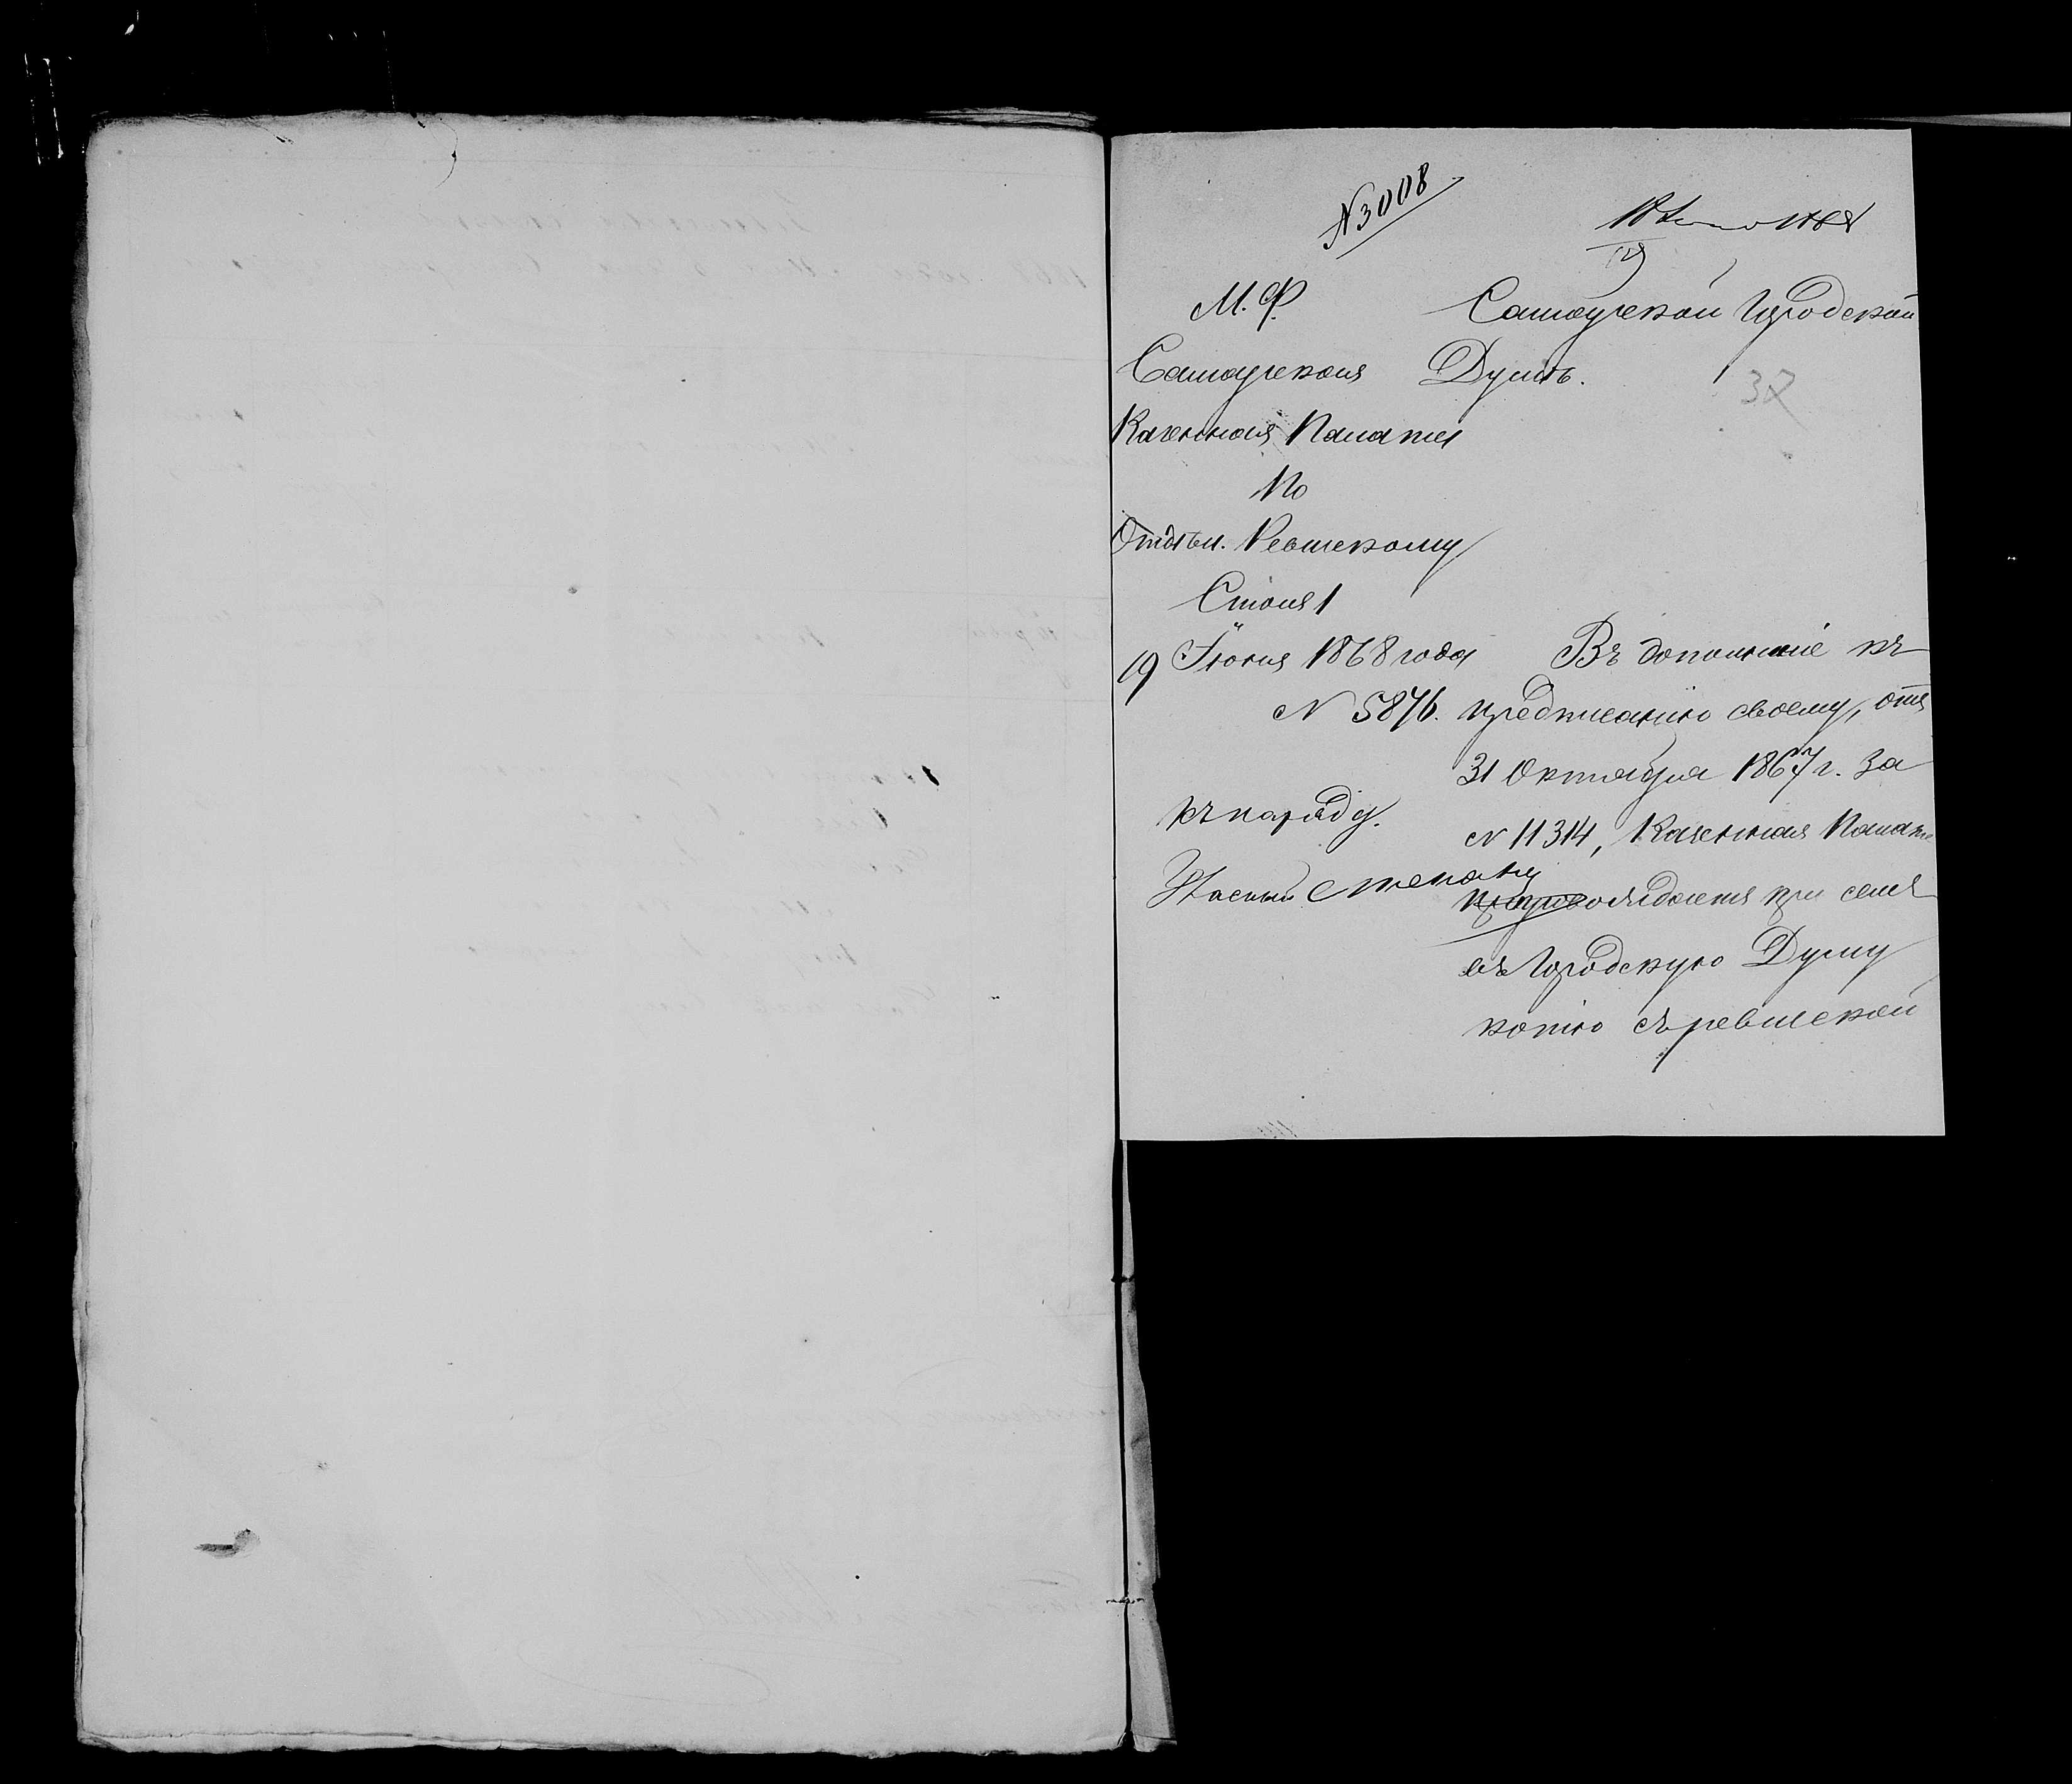 N 3008
М. Ф.
Самарская
Казенная Палата
По
Отдѣл. Ревизскому
Стола 1
19 Іюня 1868 года
N 5876.
къ наряду.
Самарской Городской
Думѣ.
37
Въ дополненіе къ
предписанію своему, отъ
31 Октября 1867 г. за
N 11314, Казенная Палата
препровождаетъ при семъ
въ Городскую Думу
копію съ ревизской